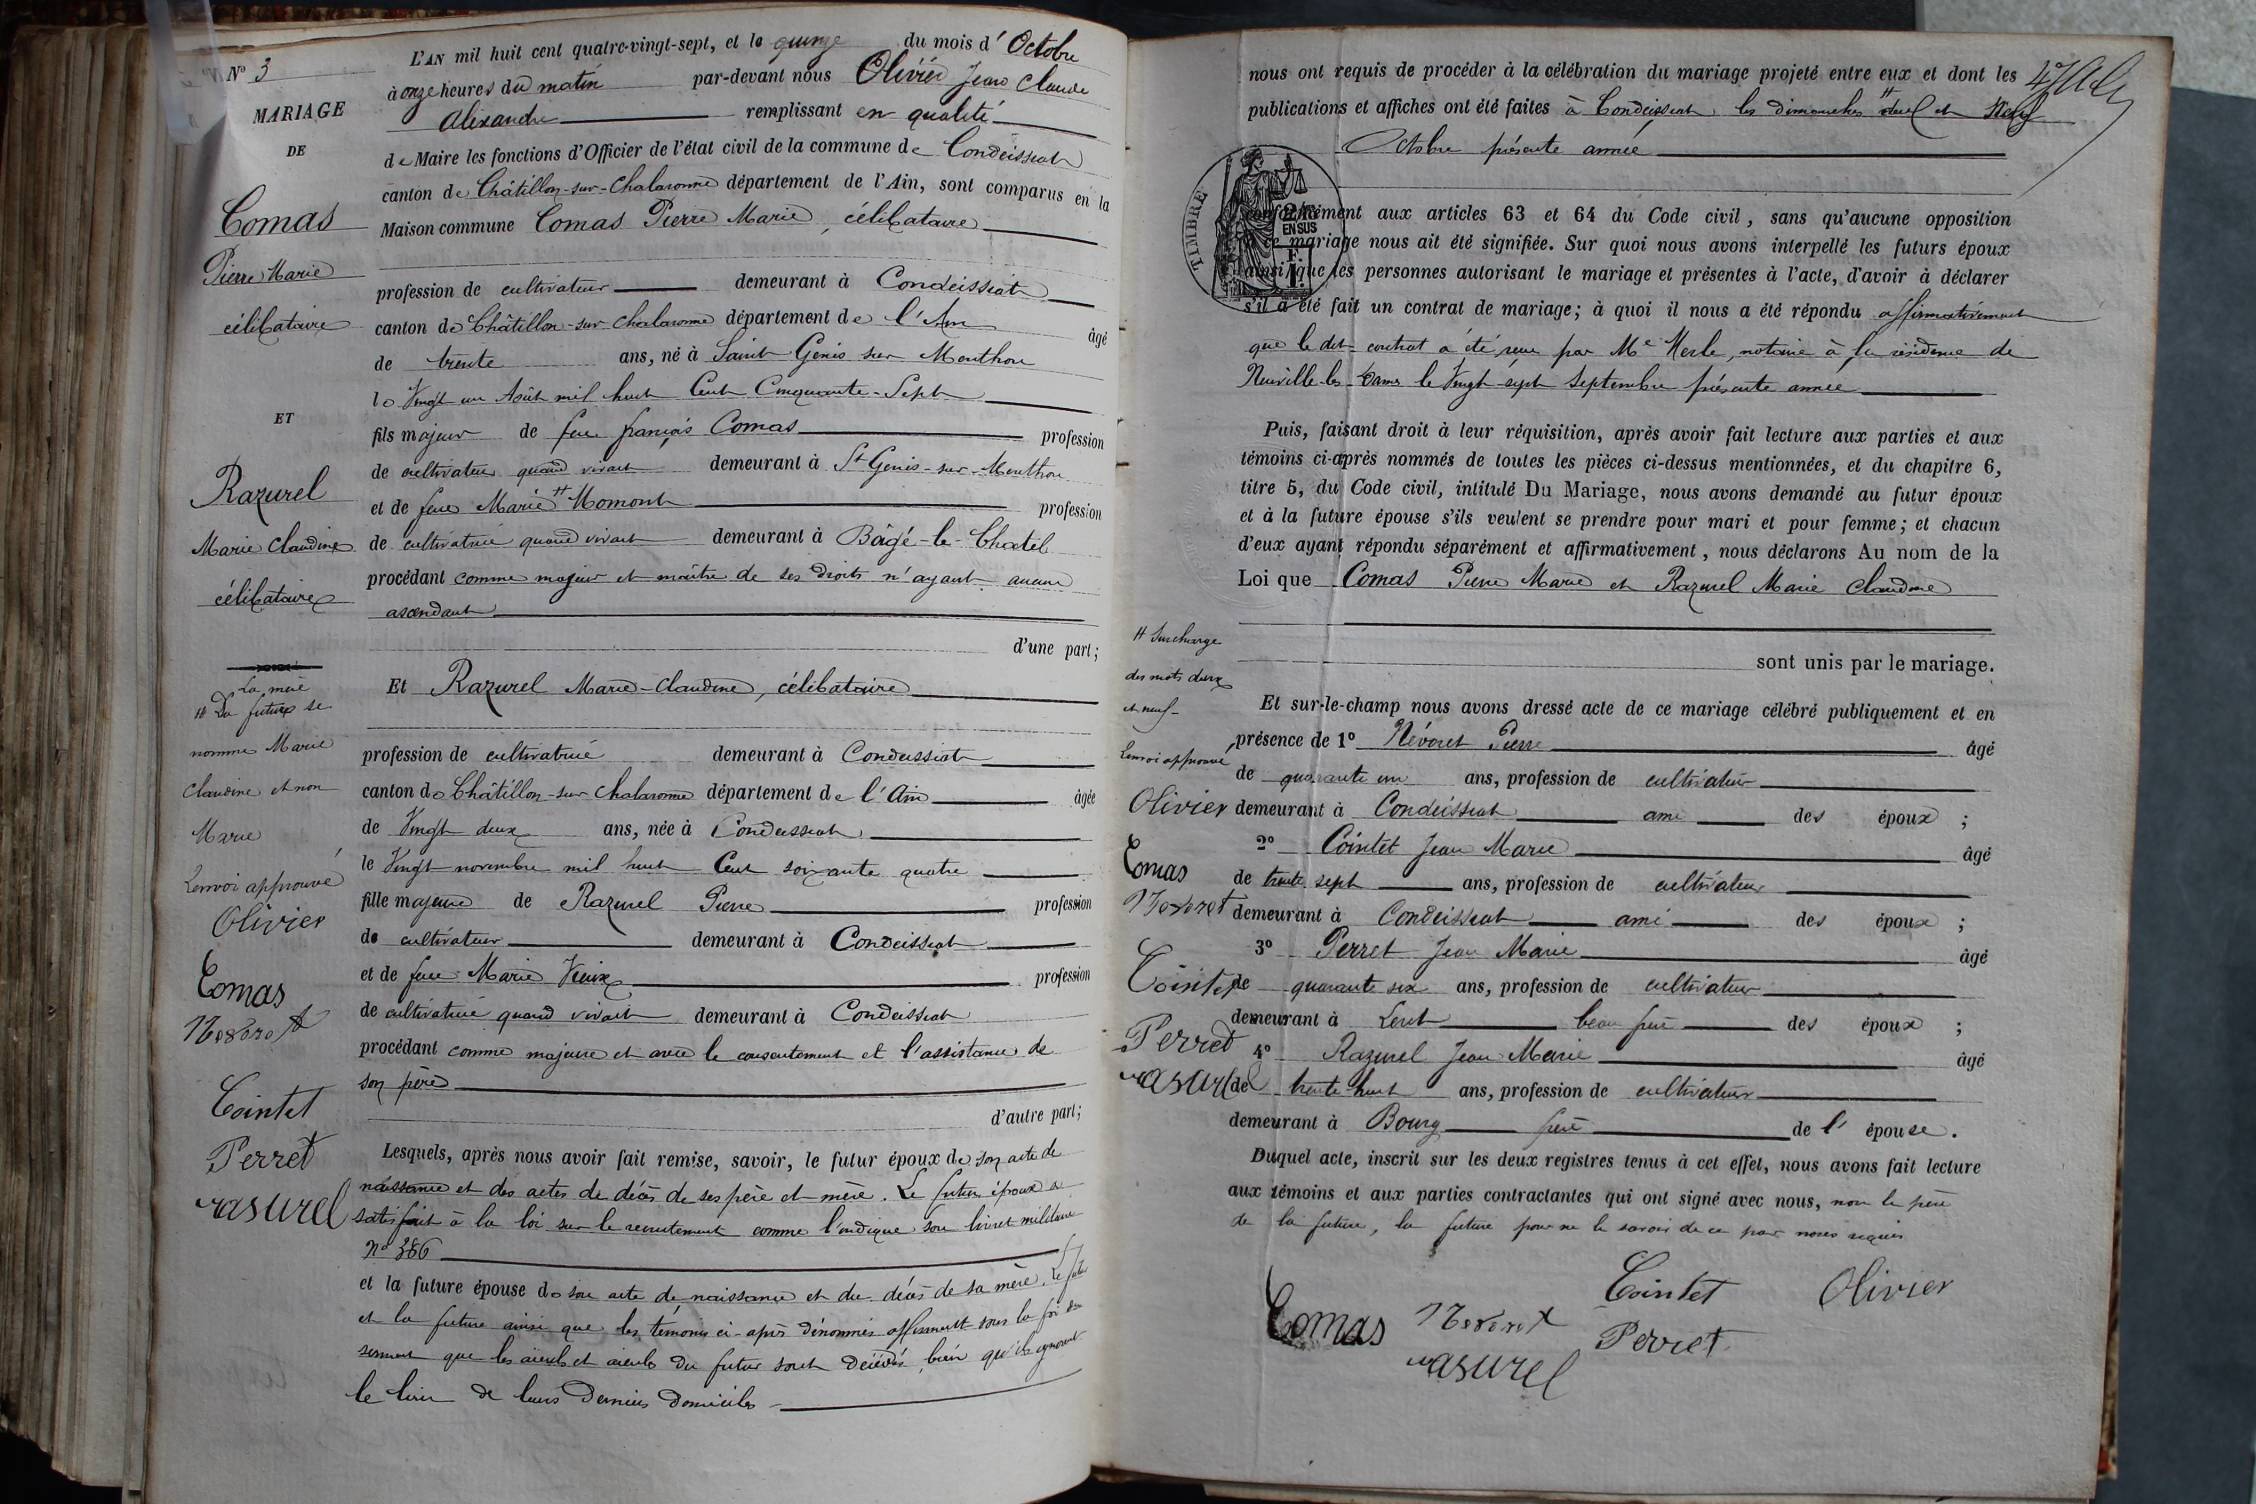 N° 3
MARIAGE
DE
Comas
Pierre Marie
célibataire
ET
Razurel
Marie Claudine
célibataire
La mère
# Du futur se
nomme Marie
Claudine et non
Marie
Renvoi approuvé
Olivier
Comas
Névoret
Cointet
Perret
rasurel
L'AN mil huit cent quatre-vingt-sept, et le quinze du mois d'Octobre
à onze heures du matin par-devant nous Olivier Jean Claude
Alexandre remplissant en qualité
de Maire les fonctions d'Officier de l'état civil de la commune de Condeissiat
canton de Châtillon-sur-Chalaronne département de l'Ain, sont comparus en la
Maison commune Comas Pierre Marie, célibataire
profession de cultivateur demeurant à Condeissiat
canton de Châtillon-sur-Chalaronne département de l'Ain âgé
de trente ans, né à Saint Genis sur Menthon
le Vingt un Août mil huit Cent Cinquante-Sept
fils majeur de feu françois Comas profession
de cultivateur quand vivait demeurant à St Genis-sur-Menthon
et de feue Marie # Momont profession
de cultivatrice quand vivait demeurant à Bâgé-le-Chatel
procédant comme majeur et maître de ses droits n'ayant aucun
ascendant
d'une part;
Et Razurel Marie-Claudine, célibataire
profession de cultivatrice demeurant à Condeissiat
canton de Châtillon-sur-Chalaronne département de l'Ain âgée
de Vingt deux ans, née à Condeissiat
le Vingt novembre mil huit Cent soixante quatre
fille majeure de Razurel Pierre profession
de cultivateur demeurant à Condeissiat
et de feue Marie Vieux profession
de cultivatrice quand vivait demeurant à Condeissiat
procédant comme majeure et avec le consentement et l'assistance de
son père
d'autre part;
Lesquels, après nous avoir fait remise, savoir, le futur époux de son acte de
naissance et des actes de décès de ses père et mère. Le futur époux a
satisfait à la loi sur le recrutement comme l'indique son livret militaire
N° 386
et la future épouse de son acte de naissance et du décès de sa mère. Le futur
et la future ainsi que les témoins ci-après dénommés affirment sous la foi du
serment que les aïeuls et aïeules du futur sont décédés, bien qu'ils ignorent
le lieu de leurs derniers domiciles
nous ont requis de procéder à la célébration du mariage projeté entre eux et dont les
publications et affiches ont été faites à Condeissiat, les dimanches # deux et Neuf
Octobre présente année
TIMBRE
EN SUS
conformément aux articles 63 et 64 du Code civil, sans qu'aucune opposition
à ce mariage nous ait été signifiée. Sur quoi nous avons interpellé les futurs époux
ainsi que les personnes autorisant le mariage et présentes à l'acte, d'avoir à déclarer
s'il a été fait un contrat de mariage; à quoi il nous a été répondu affirmativement
que le dit contrat a été reçu par Me Merle, notaire à la résidence de
Neuville-les-Dames le Vingt-sept Septembre présente année
Puis, faisant droit à leur réquisition, après avoir fait lecture aux parties et aux
témoins ci-après nommés de toutes les pièces ci-dessus mentionnées, et du chapitre 6,
titre 5, du Code civil, intitulé Du Mariage, nous avons demandé au futur époux
et à la future épouse s'ils veulent se prendre pour mari et pour femme; et chacun
d'eux ayant répondu séparément et affirmativement, nous déclarons Au nom de la
Loi que Comas Pierre Marie et Razurel Marie Claudine
sont unis par le mariage.
# Surcharge
des mots deux
et neuf
Renvoi approuvé
Olivier
Comas
Névoret
Cointet
Perret
rasurel
Et sur-le-champ nous avons dressé acte de ce mariage célébré publiquement et en
présence de 1° Névoret Pierre âgé
de quarante un ans, profession de cultivateur
demeurant à Condeissiat ami des époux ;
2° Cointet Jean Marie âgé
de trente sept ans, profession de cultivateur
demeurant à Condeissiat ami des époux ;
3° Perret Jean Marie âgé
de quarante six ans, profession de cultivateur
demeurant à Lent beau frère des époux ;
4° Razurel Jean Marie âgé
de trente huit ans, profession de cultivateur
demeurant à Bourg frère de l'épouse.
Duquel acte, inscrit sur les deux registres tenus à cet effet, nous avons fait lecture
aux témoins et aux parties contractantes qui ont signé avec nous, non le père
de la future, la future pour ne le savoir de ce par nous requis
Comas Névoret Cointet Olivier
Perret
rasurel